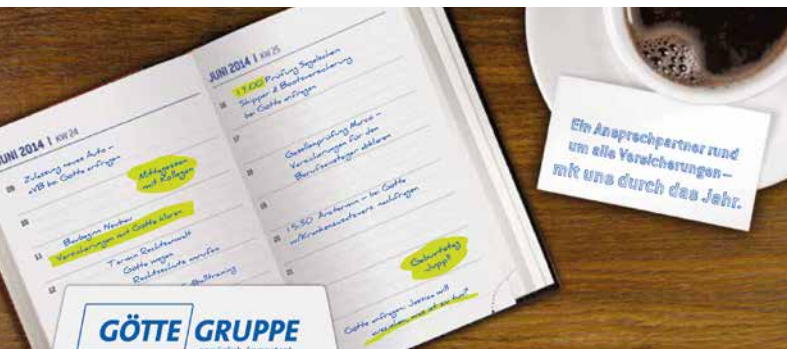 JUNI 2014 | KW 24
09 Zulassung neues Auto –
eVB bei Götte anfragen
10 Mittagessen
mit Kollegen
Baubeginn Neubau
11 Versicherungen mit Götte klären
Termin Rechtsanwalt
12 Götte wegen
Rechtsschutz anrufen
JUNI 2014 | KW 25
16 17.00 Prüfung Segelschein
Skipper & Bootsversicherung
bei Götte anfragen
17
Gesellenprüfung Marco –
18 Versicherungen für den
Berufseinsteiger abklären
19
20 15.30 Arzttermin – bei Götte
Geburtstag
Jupp!!
Götte anfragen: Jessica will
Ein Ansprechpartner rund
um alle Versicherungen –
mit uns durch das Jahr.
GÖTTE GRUPPE